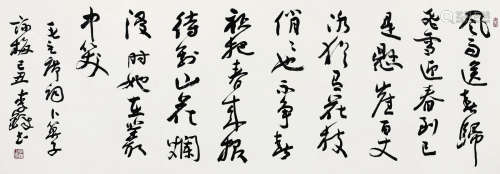 風雨送春歸
飛雪迎春到已
是懸崖百丈
冰猶有花枝
俏〻也不争春
衹把春來報
待到山花爛
漫時她在叢
中笑
毛主席詞卜算子
詠梅己丑李鐸書